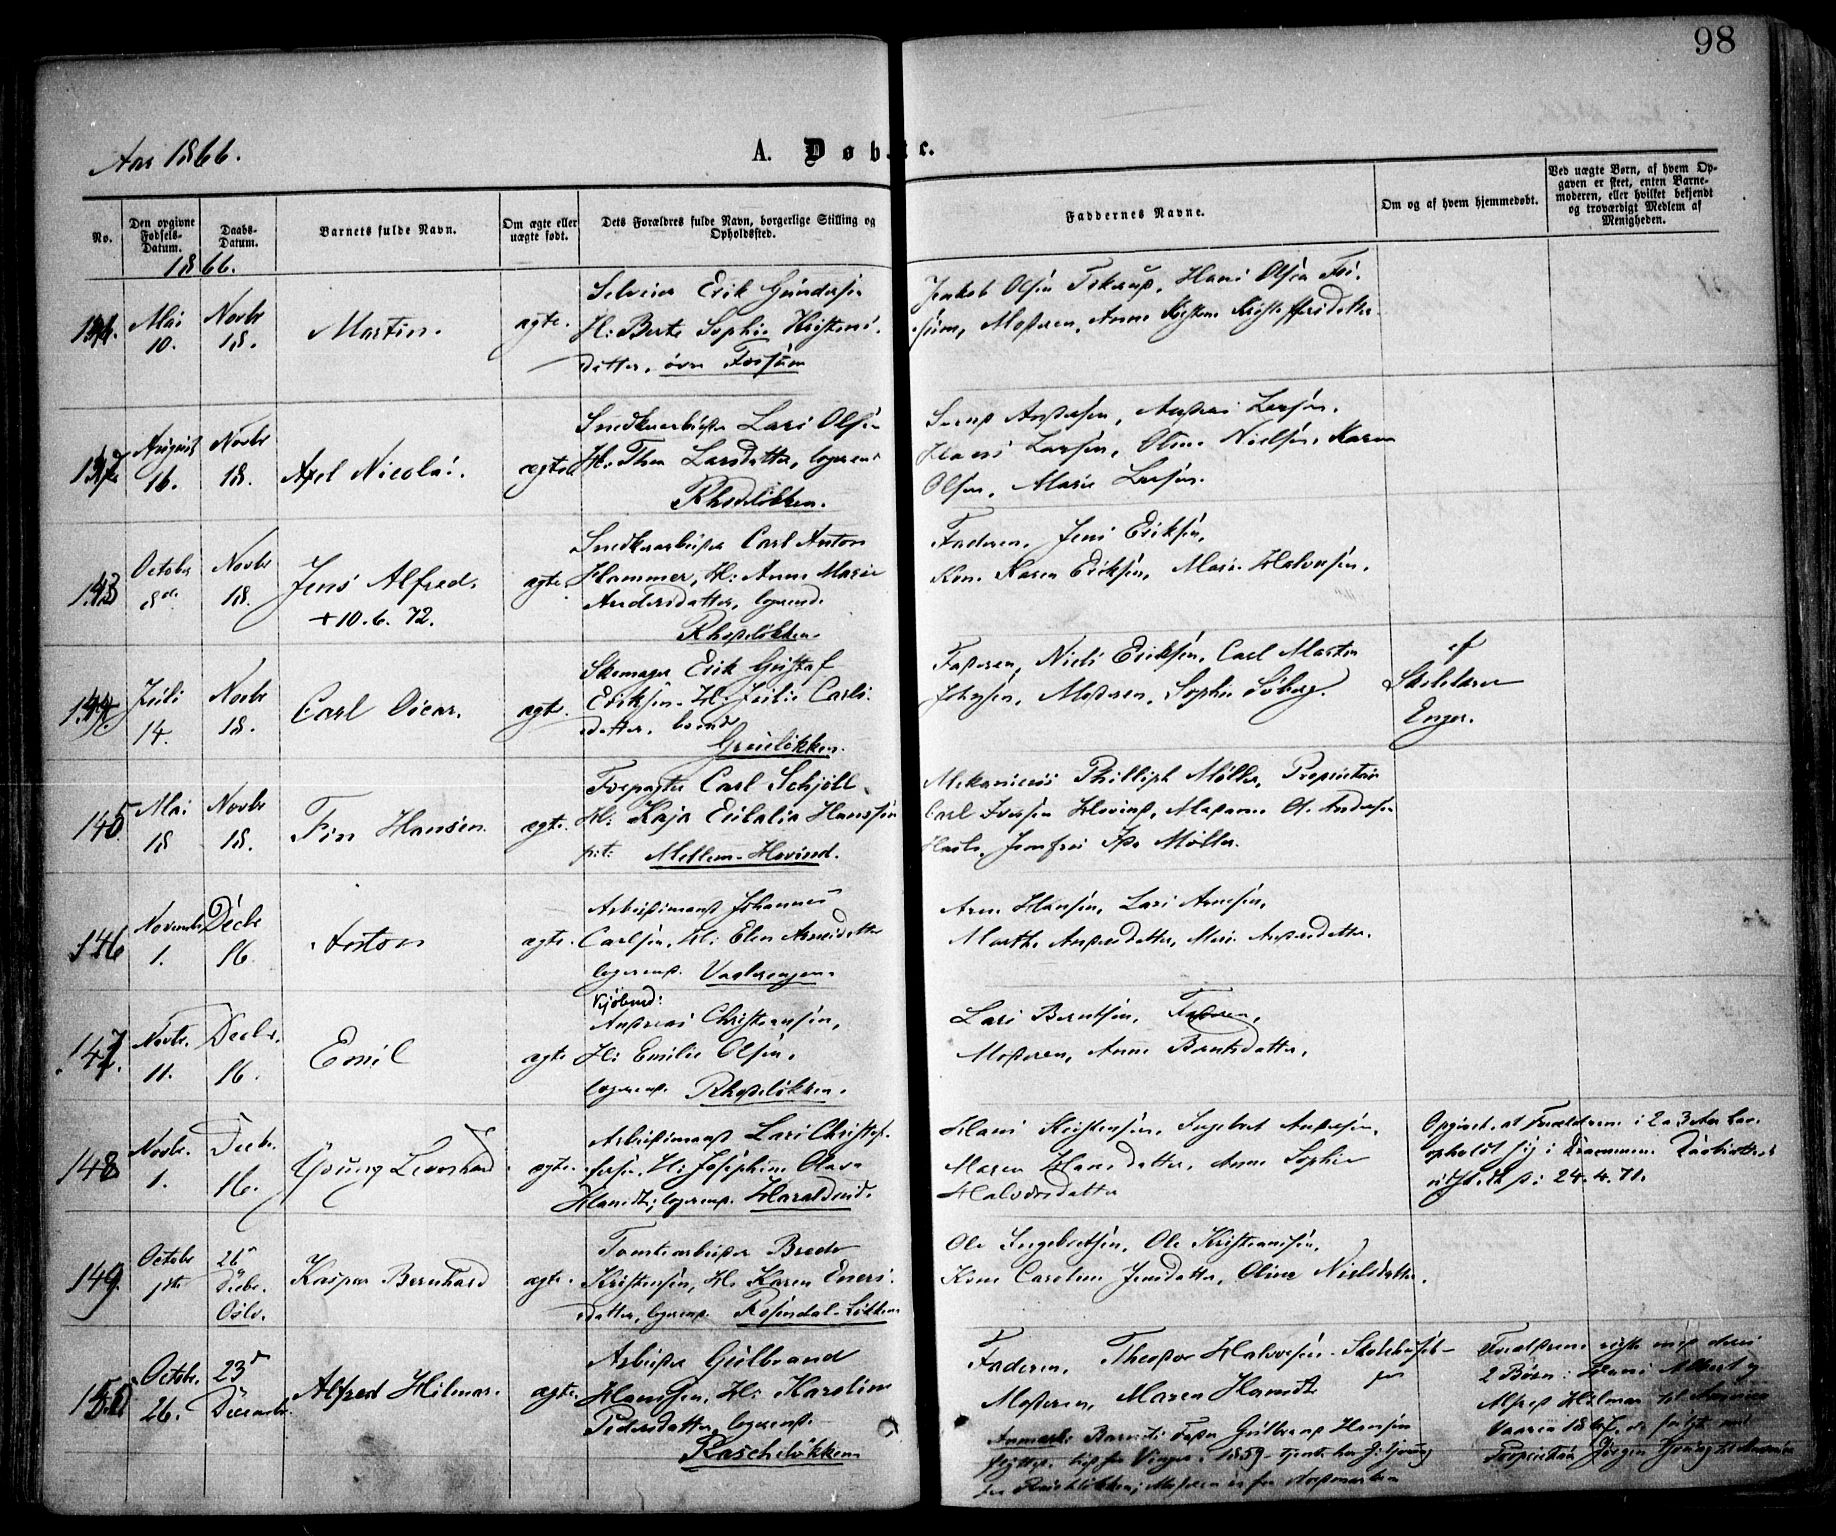 98
Aar 1866.
A. Døbte.
No.
Den opgivne Fødsels-Datum.
Daabs-Datum.
Barnets fulde Navn.
Om ægte eller uægte født.
Dets Forældres fulde Navn, borgerlige Stilling og Opholdssted.
Faddernes Navne.
Om og af hvem hjemmedøbt.
Ved uægte Børn, af hvem Opgaven er skeet, enten Barnemoderen, eller hvilket bekjendt og troværdigt Medlem af Menigheden.
1866.
Mai 10.
Novbr 18.
Martin.
ægte.
Selveier Erik Gundersen
H: Berte Sophie Kristens-
datter, øvre Fossum
Jakob Olsen Fskerud, Hans Olsen Fos-
sum, Moderen, Anne Kirstine Kristoffersdatter.
August 16.
Novbr 18.
Axel Nicolai.
ægte
Snedkerarbeider Lars Olsen
H: Thea Larsdatter, logerende
Rhodeløkken.
Andersen, Anders Larsen,
Hans Larsen, Oline Nielsen, Karen
Olsen, Marie Larsen.
143
October 8de
Novbr 18.
Jens Alfred.
+10.6.72.
ægte.
Snedkerarbeider Carl Anton
Hammer, H: Anne Marie
Andersdatter, logerende
Rhodeløkken
Faderen, Jens Eriksen,
Kone Karen Eriksen, Marie Halvorsen.
144.
Juli 14.
Novbr 18.
Carl Oscar.
ægte.
Skomager Erik Gustaf
Eriksen. H: Julie Carls-
datter, boende
Grønløkken.
Faderen, Niels Eriksen, Carl Martin
Johnsen, Moderen, Sophie Søberg.
af
Skolelærer
Enger.
145
Mai 18
Novbr 18.
Fin Hansen.
ægte.
Forpagter Carl Schjøll
H: Kaja Eulalia Hanssen
Mellem-Hovind.
Mekanicus Phillip Møller, Proprietær
Carl Iversen Hovind, Madame O. Andersen
Hasle, Jomfru Ida Møller.
146
November 1.
Decbr 16.
Anton
ægte.
Arbeidsmand Johannes
Carlsen, H: Elen Arnesdatter
logerend. Vaalerengen.
Arne Hansen, Lars Arnesen,
Marthe Andersdatter, Marie Andersdatter.
147.
Novbr. 11.
Decbr. 16.
Emil
ægte
Andreas Christiansen,
H: Emilie Olsen,
logerend. Rhodeløkken.
Lars Berntsen, Faderen,
Moderen, Anne Berntsdatter.
148
Novbr. 1.
Decbr. 16.
Georg Leonhard
ægte.
Arbeidsmand Lars Christof-
fersen, H: Josephine Olava
Hansdt; logerend. Haraldrud.
Hans Kristensen, Ingebret Andersen,
Maren Hansdatter, Anne Sophie
Halvorsdatter
Opgivet, at Forældrene i 2 a 3 Aar har
opholdt sig i Drammen.
24.4.71.
149.
October 1ste
26de Decbr. Oslo.
Kaspar Bernhard
ægte.
Tomtearbeider Brede
Kristensen, H: Karen Eners-
datter, logerend. Rosendal-Løkken
Ole Ingebretsen, Ole Kristiansen,
Kone Caroline Jensdatter, Oline Nielsdatter.
150
Octobr. 26.
23de Decembr.
Alfred Hilmar.
ægte.
Arbeider Gulbrand
Hanssen, H: Karoline
Pedersdatter, logerend.
Raschløkken
Faderen, Theodor Halvorsen
Moderen, Maren Hansdt
Anmærk: Barnets Fader Gulbrand Hansen
1859
Forældrene reiste med deres
2 Børn: Hans Albert og
Alfred Hilmar til Amerika
Vaaren 1867,